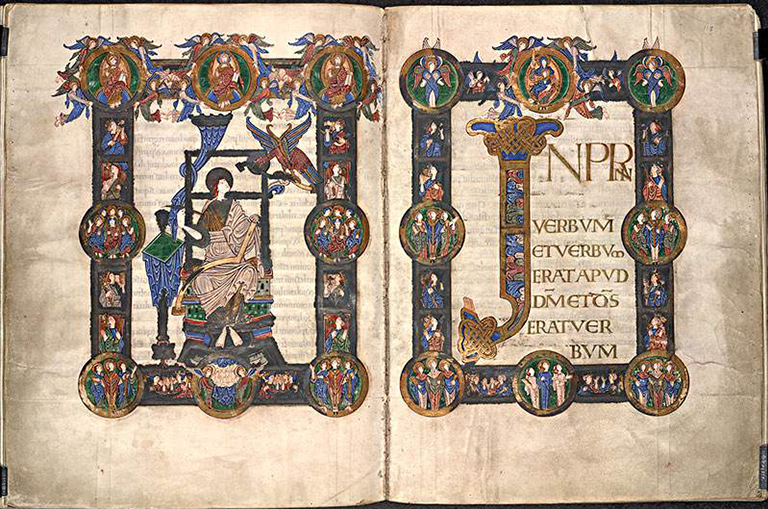 INPRIN
VERBVM
ETVERBVM
ERATAPVD
DM̄ETDS̄
ERATVER
BVM